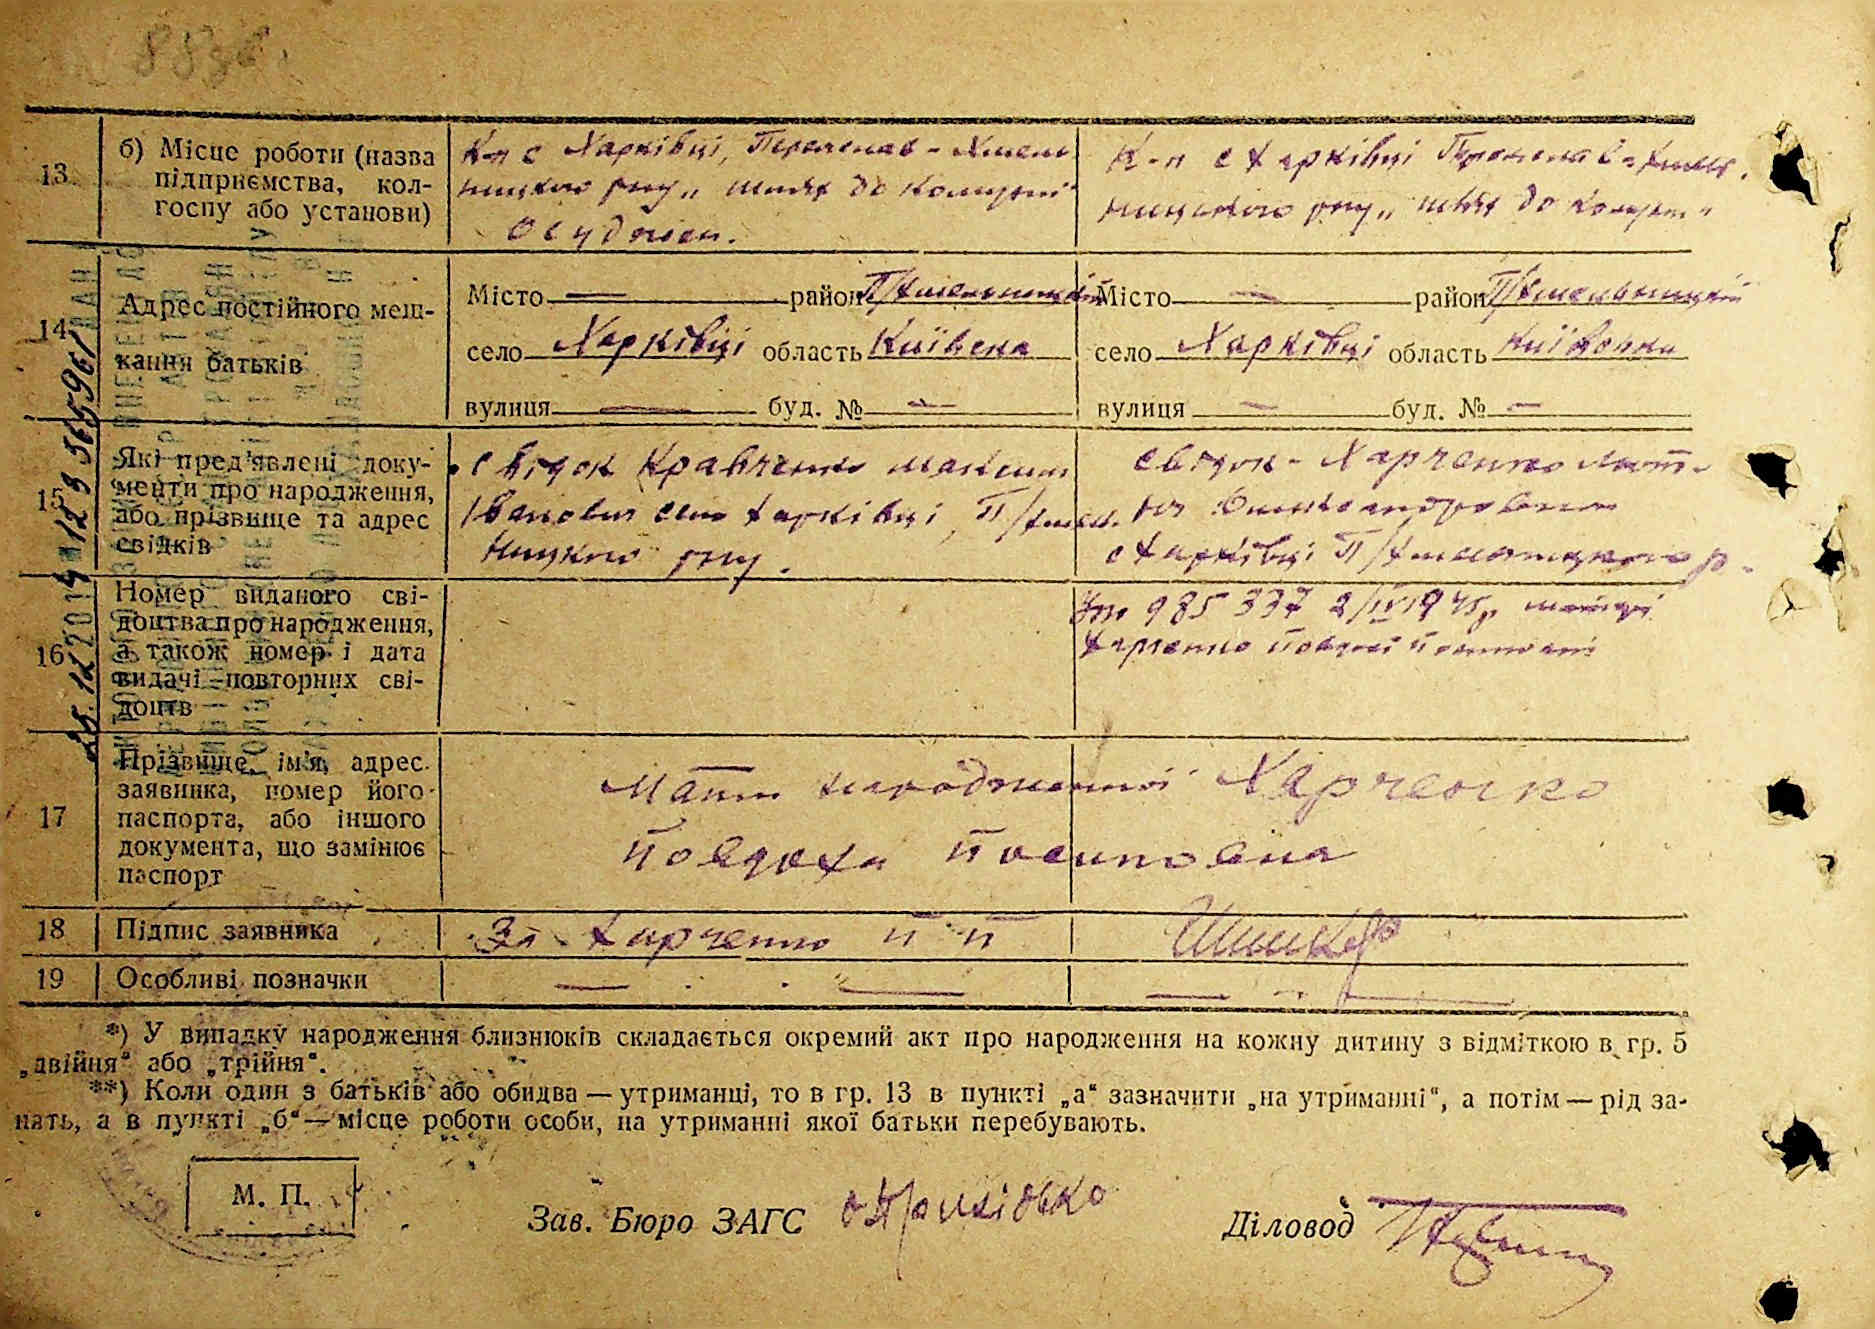 13
б) Місце роботи (назва
підприємства, кол-
госпу або установи)
К-п с Харківці, Переяслав-Хмель
ницького р-ну „шлях до комуни"
К-п с Харківці Переяслав-Хмель.
ницького р-ну „шлях до комуни"
14
Адрес постійного меш-
кання батьків
Місто — район П/Хмельницький
село Харківці область Київська
вулиця — буд. № —
Місто — район П/Хмельницький
село Харківці область Київська
вулиця — буд. № —
15
Які пред'явлені доку-
менти про народження,
або прізвище та адрес
свідків
свідок Кравченко Максим
Іванович село Харківці, П/Хмель.
ницького р-ну.
свідок - Харченко
с Харківці П/Хмельницького р-
16
Номер виданого сві-
доцтва про народження,
а також номер і дата
видачі повторних сві-
доцтв
985 337 2/IV 194 матері
Харченко Повдосі Посиповні
17
Прізвище, ім'я, адрес
заявника, номер його
паспорта, або іншого
документа, що замінює
паспорт
Мати народженої Харченко
Повдоха Посиповна
18
Підпис заявника
За Харченко П П
19
Особливі позначки
*) У випадку народження близнюків складається окремий акт про народження на кожну дитину з відміткою в гр. 5
„двійня“ або „трійня“.
**) Коли один з батьків або обидва — утриманці, то в гр. 13 в пункті „а“ зазначити „на утриманні“, а потім — рід за-
нять, а в пункті „б“ — місце роботи особи, на утриманні якої батьки перебувають.
М. П.
Зав. Бюро ЗАГС
Діловод